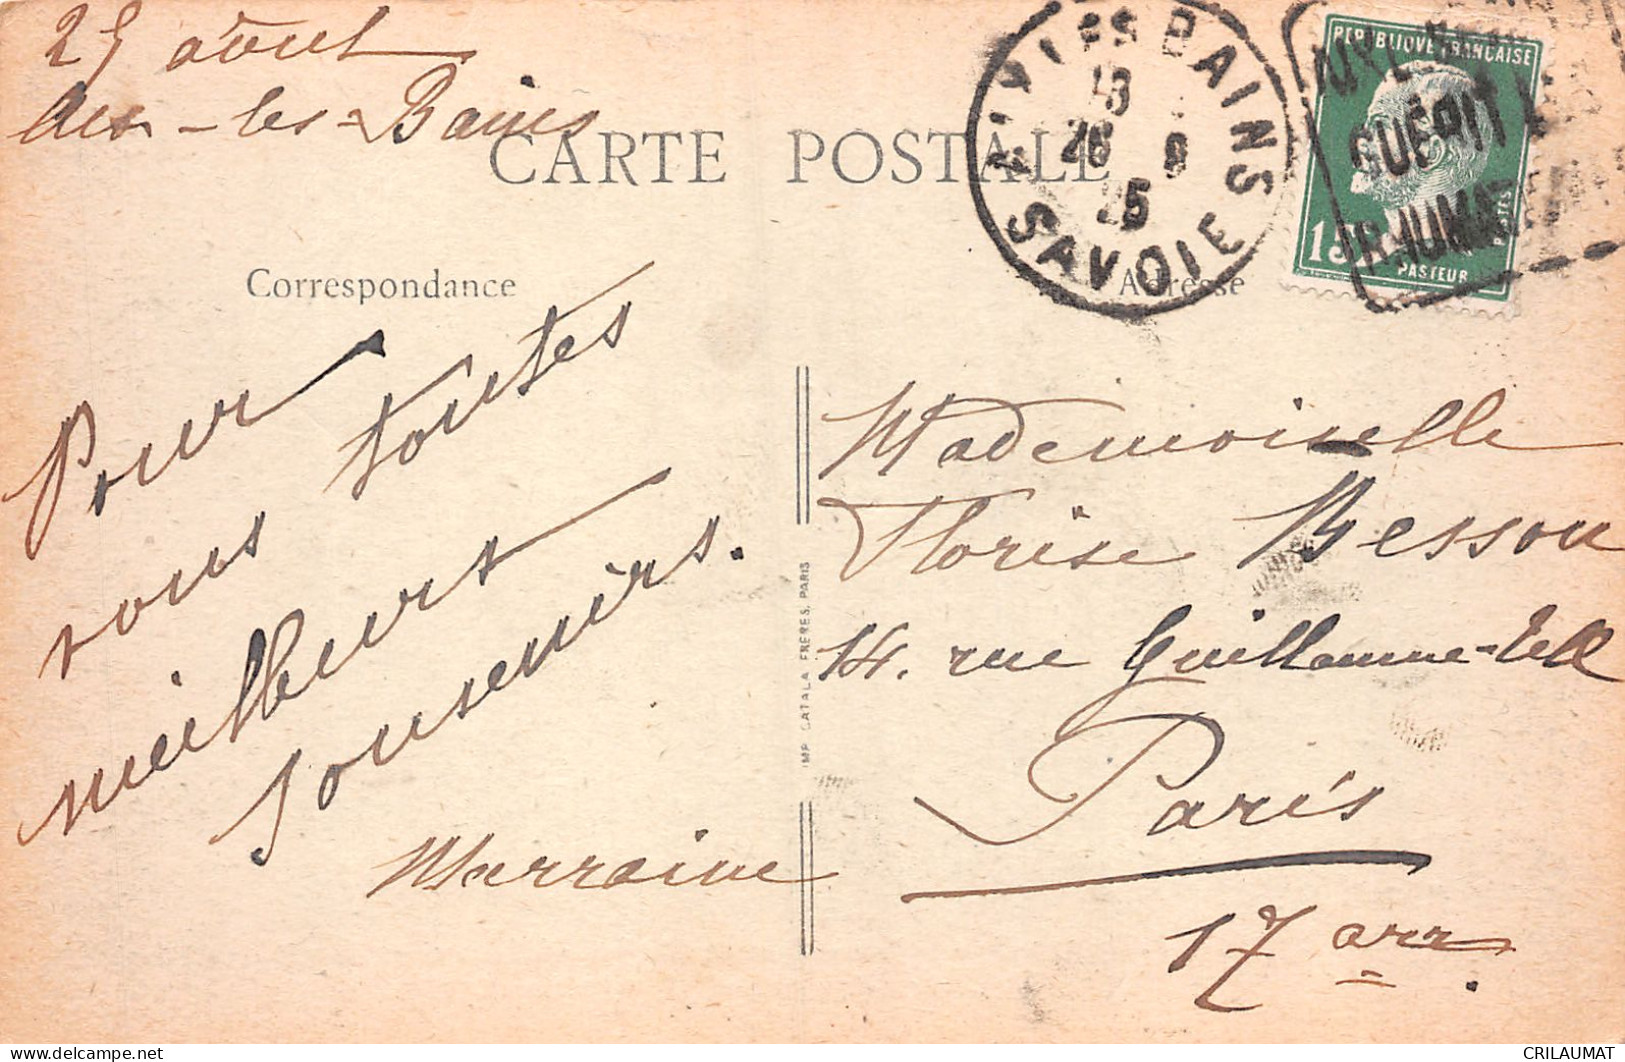 25 août
Aix-les-Bains
CARTE POSTALE
AIX LES BAINS
13
26 8
25
SAVOIE
REPUBLIQUE FRANÇAISE
POSTES
15
PASTEUR
GUÉRIT
RHUMAT
Correspondance
Adresse
Pour
vous toutes
meilleurs
souvenirs.
Marraine
IMP. CATALA FRÈRES, PARIS
Mademoiselle
Florise Besson
14. rue Guillaume-Tell
Paris
17 arr.
CRILAUMAT